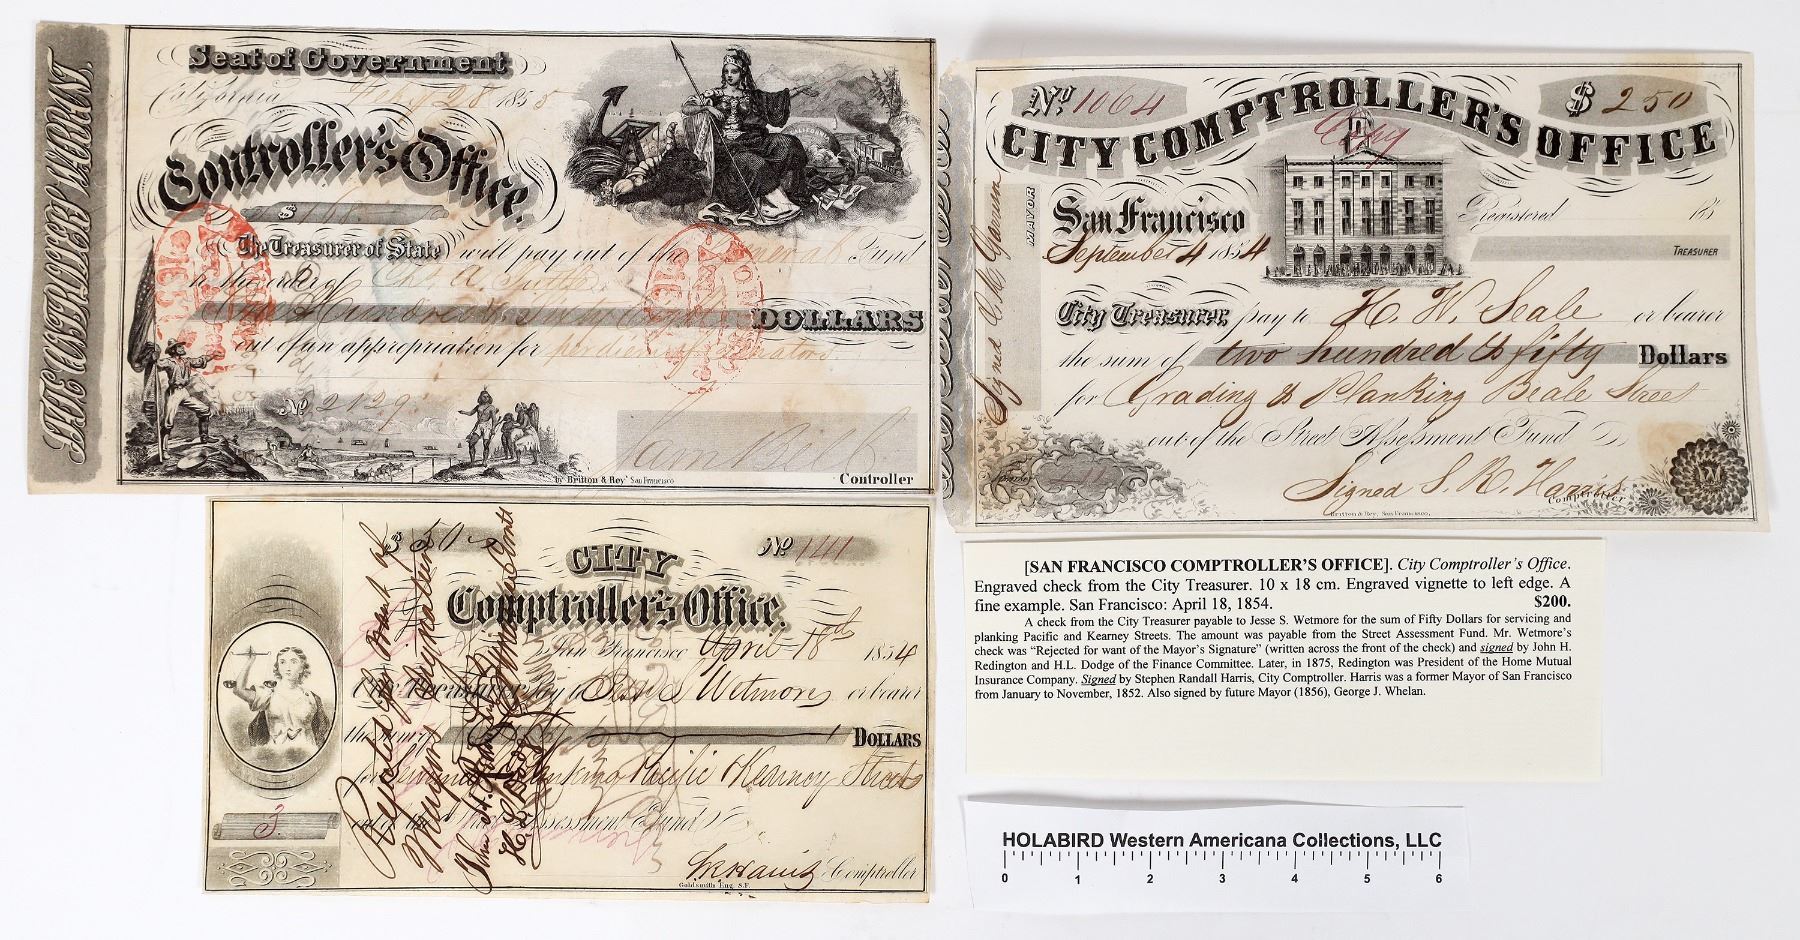 THE CUSTODIERY WARRANT.
Seat of Government
California, Feby 28 1855
Controller's Office.
$
CALIFORNIA
The Treasurer of State will pay out of the General Fund
to the order of
One Hundred & Sixty DOLLARS
out of an appropriation for per diem of Senators.
No. 2129
Sam Bell
by Britton & Rey San Francisco
Controller
No. 1064
$ 250
CITY COMPTROLLER'S OFFICE
Copy
San Francisco
Registered 185
September 4 1854
TREASURER
MAYOR
Signed
City Treasurer, pay to H. W. Seale or bearer
the sum of two hundred & fifty Dollars
for Grading & Planking Beale Street
out of the Street Assessment Fund
Signed S. R. Harris
Comptroller
Britton & Rey, San Francisco.
$ 50
No. 1411
CITY
Comptroller's Office.
San Francisco April 18th 1854
City Treasurer, pay to S. Wetmore or bearer
the sum of DOLLARS
for Planking Pacific & Kearney Streets
out of the Street Assessment Fund
3
Rejected for want of
Mayors Signature
Comptroller
Goldsmith Eng. S.F.
[SAN FRANCISCO COMPTROLLER'S OFFICE]. City Comptroller's Office.
Engraved check from the City Treasurer. 10 x 18 cm. Engraved vignette to left edge. A
fine example. San Francisco: April 18, 1854. $200.
A check from the City Treasurer payable to Jesse S. Wetmore for the sum of Fifty Dollars for servicing and
planking Pacific and Kearney Streets. The amount was payable from the Street Assessment Fund. Mr. Wetmore's
check was "Rejected for want of the Mayor's Signature" (written across the front of the check) and signed by John H.
Redington and H.L. Dodge of the Finance Committee. Later, in 1875, Redington was President of the Home Mutual
Insurance Company. Signed by Stephen Randall Harris, City Comptroller. Harris was a former Mayor of San Francisco
from January to November, 1852. Also signed by future Mayor (1856), George J. Whelan.
HOLABIRD Western Americana Collections, LLC
0 1 2 3 4 5 6